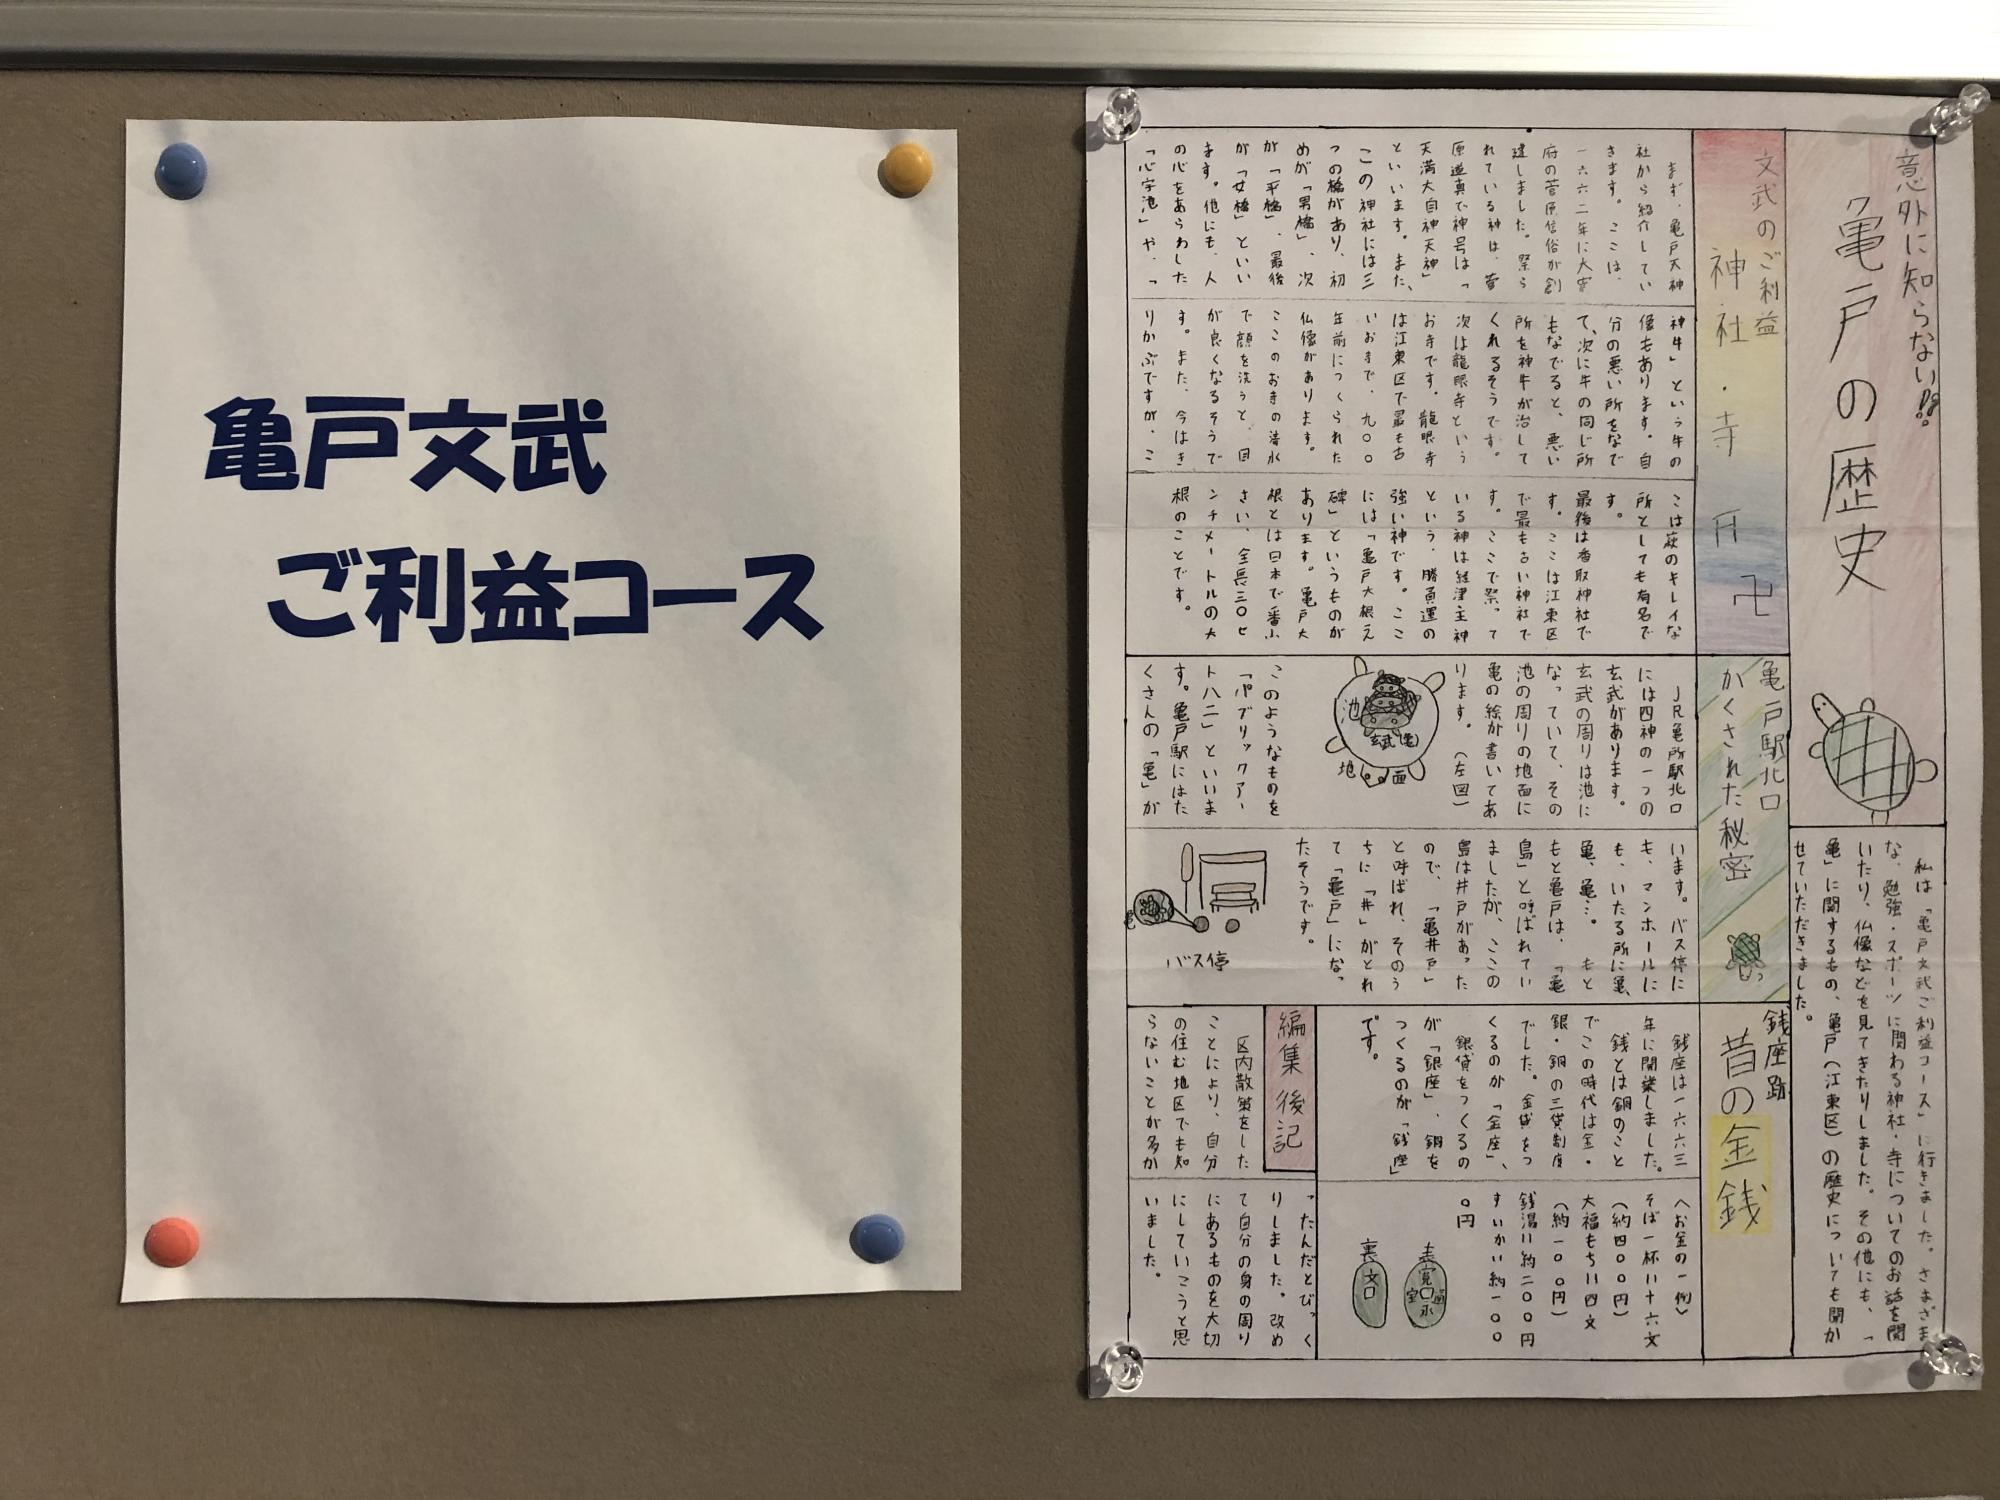 亀戸文武
ご利益コース
意外に知らない!?
亀戸の歴史
私は「亀戸文武ご利益コース」に行きました。さまざま
な、勉強・スポーツに関わる神社・寺についてのお話を聞
いたり、仏像などを見てきたりしました。その他にも、「
亀」に関するもの、亀戸(江東区)の歴史についても聞か
せていただきました。
文武のご利益
神社・寺 卍
まず、亀戸天神
社から紹介してい
きます。ここは、
一六六二年に大宰
府の菅原信俗が創
建しました。祭ら
れている神は、菅
原道真で神号は「
天満大自神天神」
といいます。また、
この神社には三
つの橋があり、初
めが「男橋」、次
が「平橋」、最後
が「女橋」といい
ます。他にも、人
の心をあらわした
「心字池」や、「
神牛」という牛の
像もあります。自
分の悪い所をなで
て、次に牛の同じ所
もなでると、悪い
所を神牛が治して
くれるそうです。
次は龍眼寺という
お寺です。龍眼寺
は江東区で最も古
いお寺で、九〇〇
年前につくられた
仏像があります。
ここのお寺の清水
で顔を洗うと、目
が良くなるそうで
す。また、今はき
りかぶですが、こ
こは萩のキレイな
所としても有名で
す。
最後は香取神社で
す。ここは江東区
で最も古い神社で
す。ここで祭って
いる神は経津主神
という、勝負運の
強い神です。ここ
には「亀戸大根え
碑」というものが
あります。亀戸大
根とは日本で一番小
さい、全長三〇セ
ンチメートルの大
根のことです。
亀戸駅北口
かくされた秘密
JR亀所駅北口
には四神の一つの
玄武があります。
玄武の周りは池に
なっていて、その
池の周りの地面に
亀の絵が書いてあ
ります。(左図)
池
玄武(亀)
地面
このようなものを
「パブリックアー
トハニ」といいま
す。亀戸駅にはた
くさんの「亀」が
います。バス停に
も、マンホールに
も、いたる所に亀、
亀、亀…。もと
もと亀戸は、「亀
島」と呼ばれてい
ましたが、ここの
島は井戸があった
ので、「亀井戸」
と呼ばれ、そのう
ちに「井」がとれ
て「亀戸」になっ
たそうです。
亀
バス停
銭座跡
昔の金銭
銭座は一六六三
年に開業しました。
銭とは銅のこと
でこの時代は金・
銀・銅の三貨制度
でした。金貨をつ
くるのが「金座」、
銀貨をつくるの
が「銀座」、銅を
つくるのが「銭座」
です。
〈お金の一例〉
そば一杯=十六文
(約四〇〇円)
大福もち=四文
(約一〇〇円)
銭湯=約二〇〇円
すいかい約一〇〇
〇円
表
裏
文
編集後記
区内散策をした
ことにより、自分
の住む地区でも知
らないことが多か
ったんだとびっく
りしました。改め
て自分の身の周り
にあるものを大切
にしていこうと思
いました。